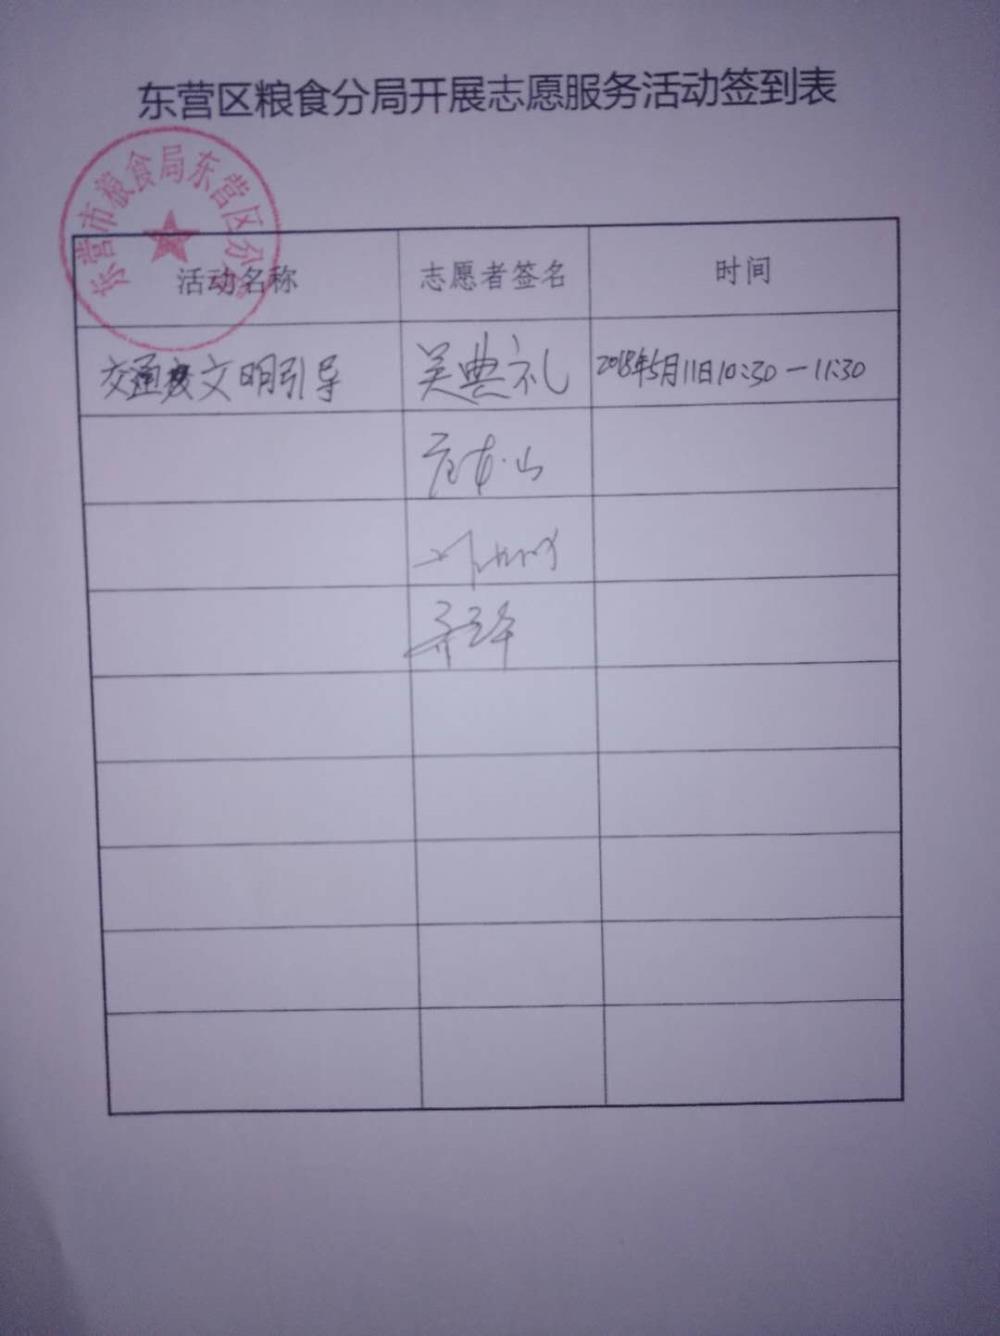 东营区粮食分局开展志愿服务活动签到表
东营市粮食局东营区分局
活动名称 志愿者签名 时间
交通文明引导 吴典礼 2018年5月11日10:30—11:30